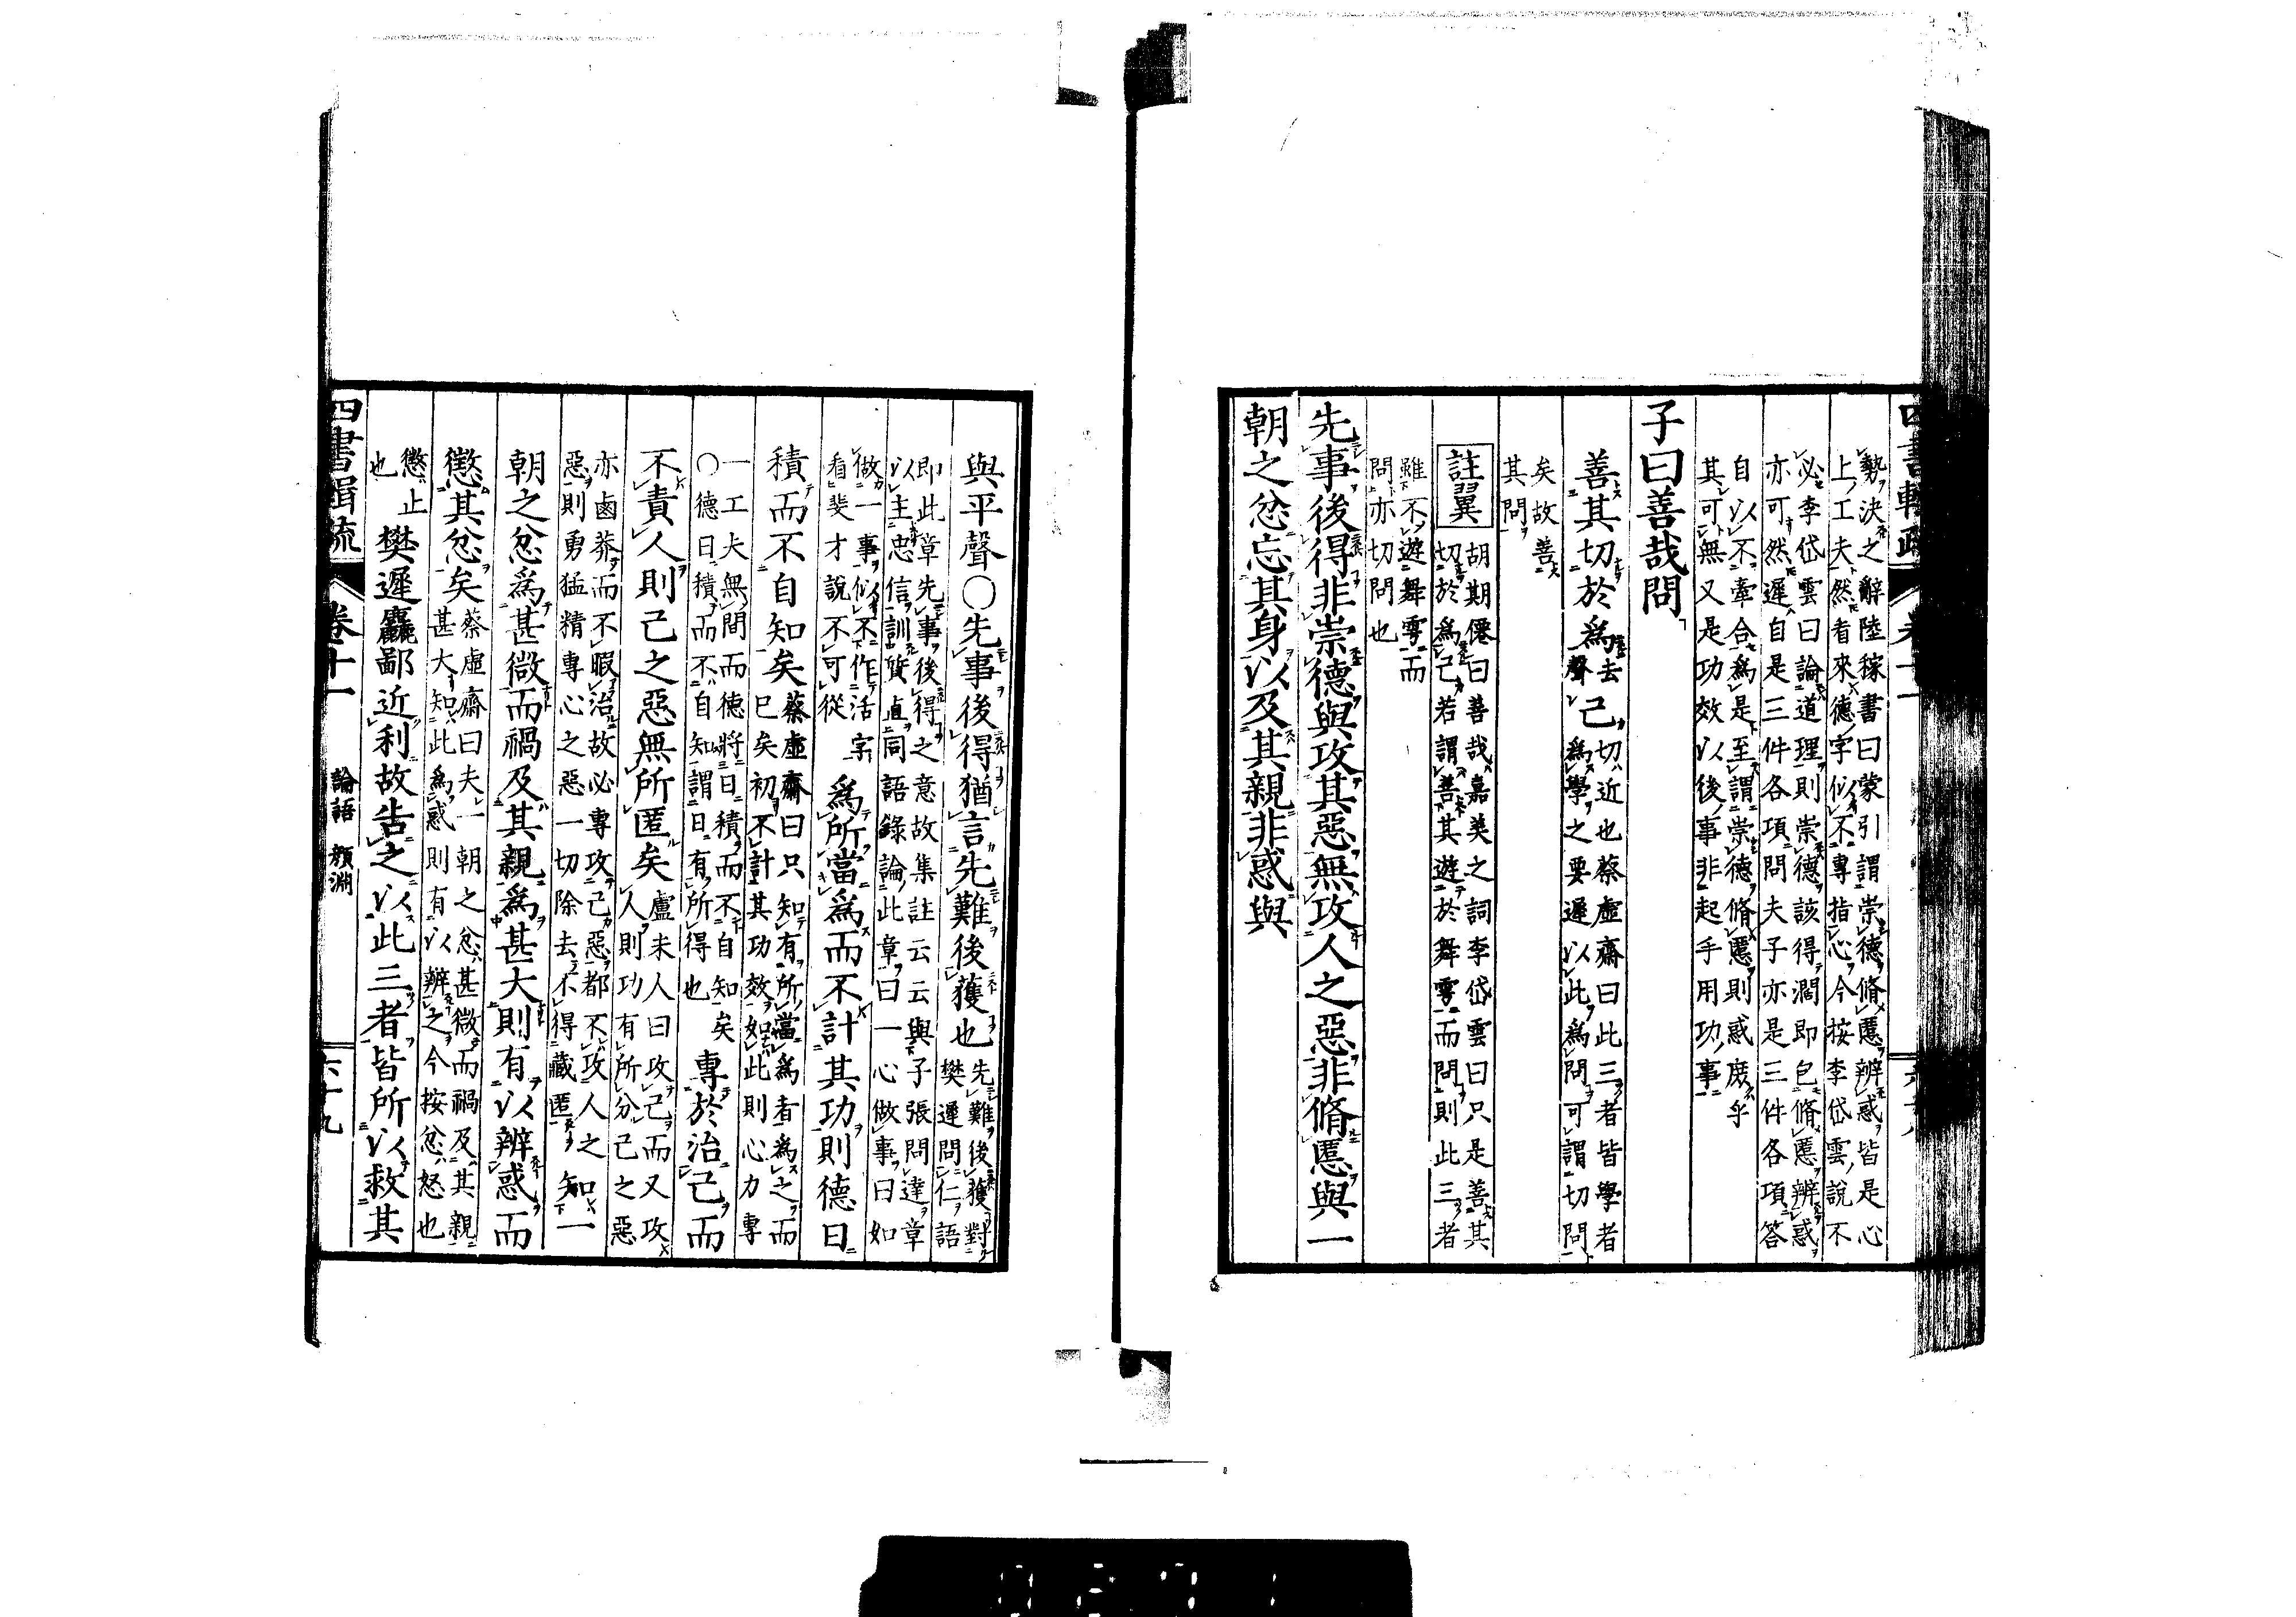 勢決之辭陸稼書曰蒙引謂崇德脩慝辨惑皆是心
上工夫然看來德字似不專指心今按李岱雲説不
必李岱雲曰論道理則崇德該得濶即包脩慝辨惑
亦可然遲自是三件各項問夫子亦是三件各項答
自以不牽合爲是至謂崇德脩慝則惑庶乎
其可無又是功效以後事非起手用功事
子曰善哉問
善其切於爲去聲己切近也蔡虛齋曰此三者皆學者
爲學之要遲以此爲問可謂切問
矣故善
其問
註翼
胡期僊曰善哉嘉美之詞李岱雲曰只是善其
切於爲己若謂善其遊於舞雩而問則此三者
雖不遊舞雩而
問亦切問也
先事後得非崇德與攻其惡無攻人之惡非脩慝與一
朝之忿忘其身以及其親非惑與
與平聲○先事後得猶言先難後獲也先難後獲對
樊遲問仁語
即此章先事後得之意故集註云云與子張問達章
以主忠信訓質直同語錄論此章曰一心做事曰如
做一事似不作活字
看斐才說不可從
爲所當爲而不計其功則德日
積而不自知矣蔡虛齋曰只知有所當爲者爲之而
已矣初不計其功效如此則心力專
一工夫無間而德將日積而不自知矣
○德日積而不自知謂日有所得也
專於治己而
不責人則己之惡無所匿矣盧未人曰攻己而又攻
人則功有所分己之惡
亦鹵莽而不暇治故必專攻己惡都不攻人之惡
惡則勇猛精專心之惡一切除去不得藏匿
知一
朝之忿爲甚微而禍及其親爲甚大則有以辨惑而
懲其忿矣蔡虛齋曰夫一朝之忿甚微而禍及其親
甚大知此爲惑則有以辨之今按忿怒也
懲止
也
樊遲麤鄙近利故告之以此三者皆所以救其
四書輯疏 卷十一 論語 顏淵 六十九